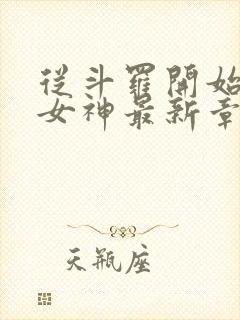 從斗羅開始
女神最新章
天瓶座